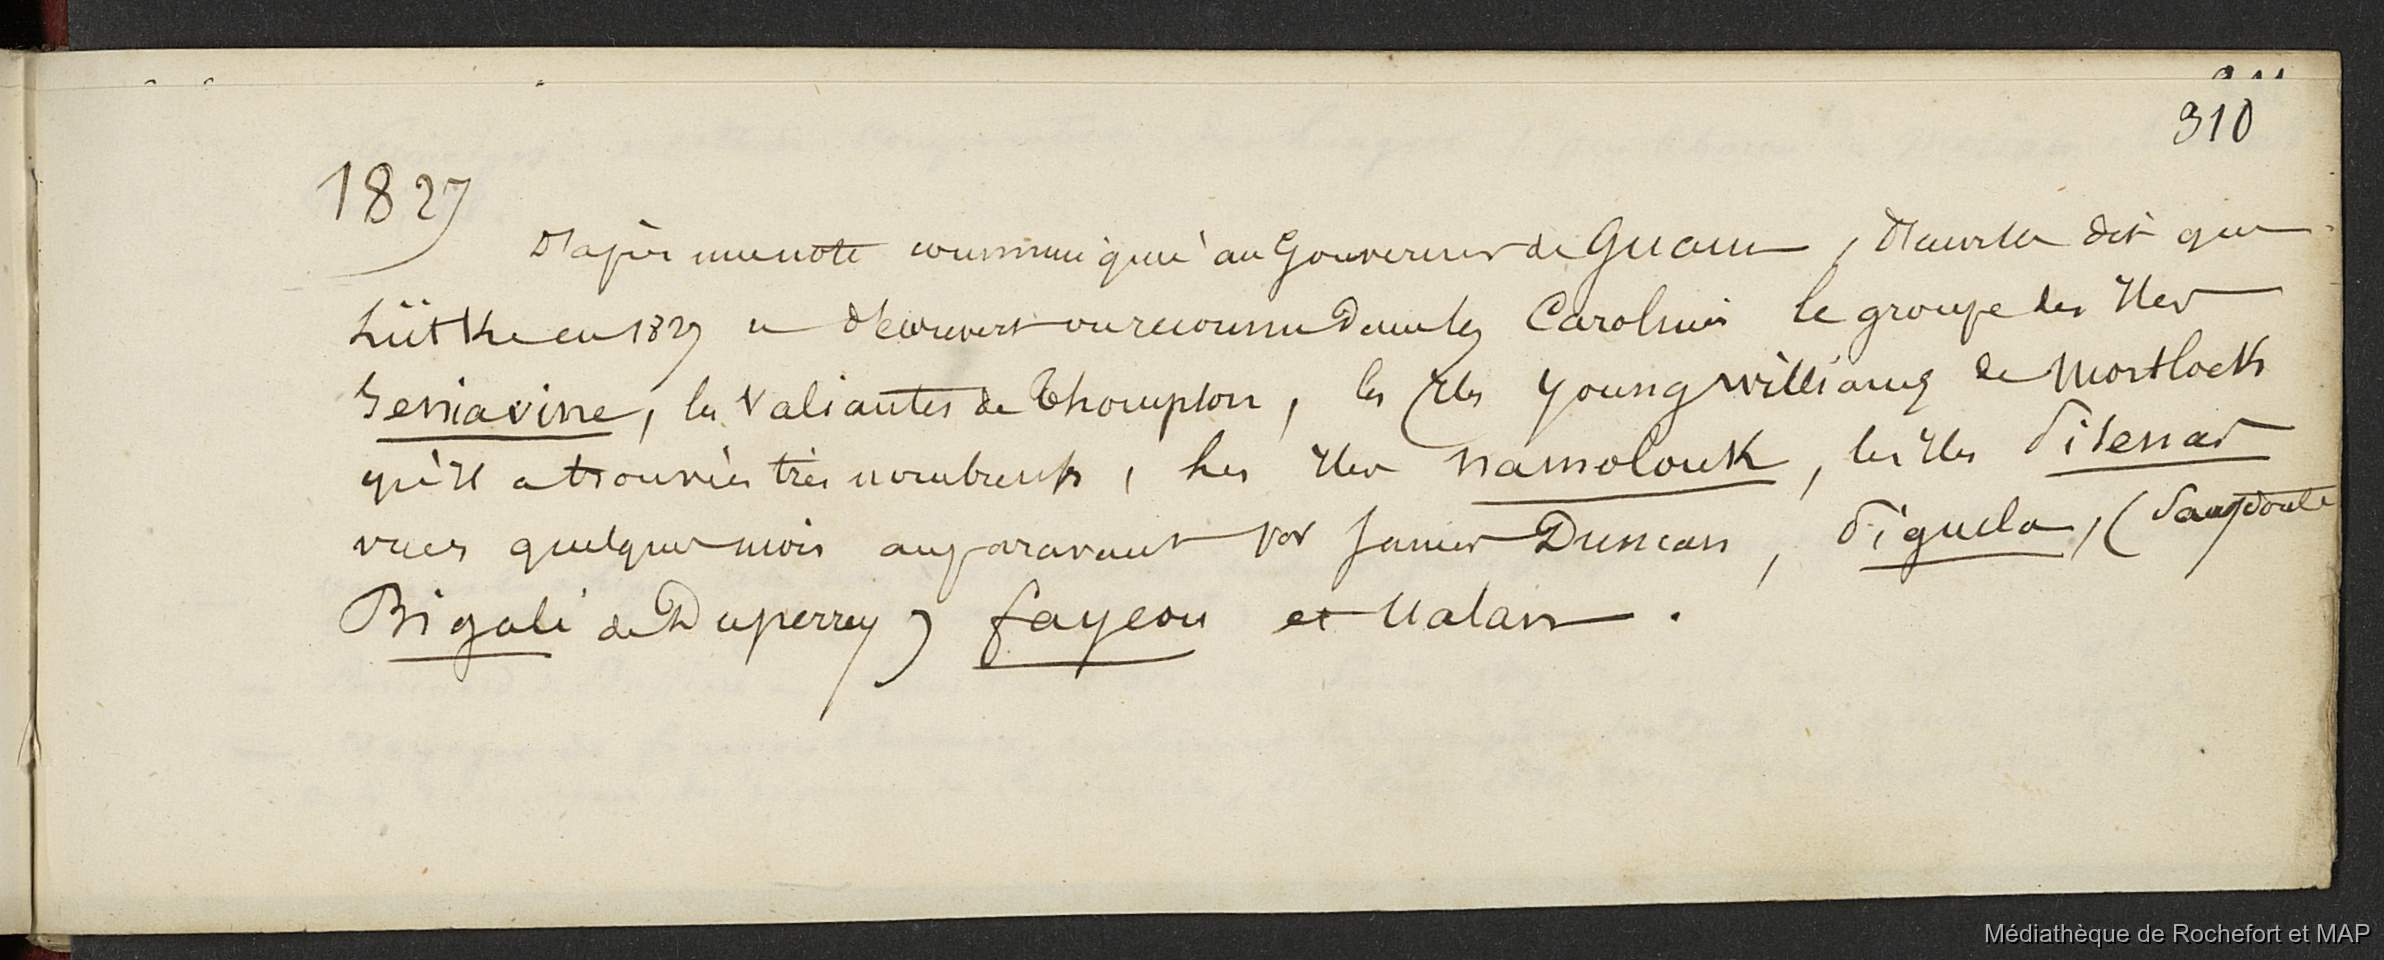 310
1827
D'après une note communiquée au Gouverneur de Guam, D'Urville dit que
Lütke en 1827 a découvert ou reconnu dans les Carolines le groupe des Iles
Seniavine, les Valiantes de Thompson, les Iles Young Williams de Mortlock
qu'il a trouvées très nombreuses, les Iles Namolouk, les Iles Piserar
vues quelques mois auparavant par James Duncan, Piguela, (sans doute
Bigali de Duperrey) Fayeou et Ualan.
Médiathèque de Rochefort et MAP